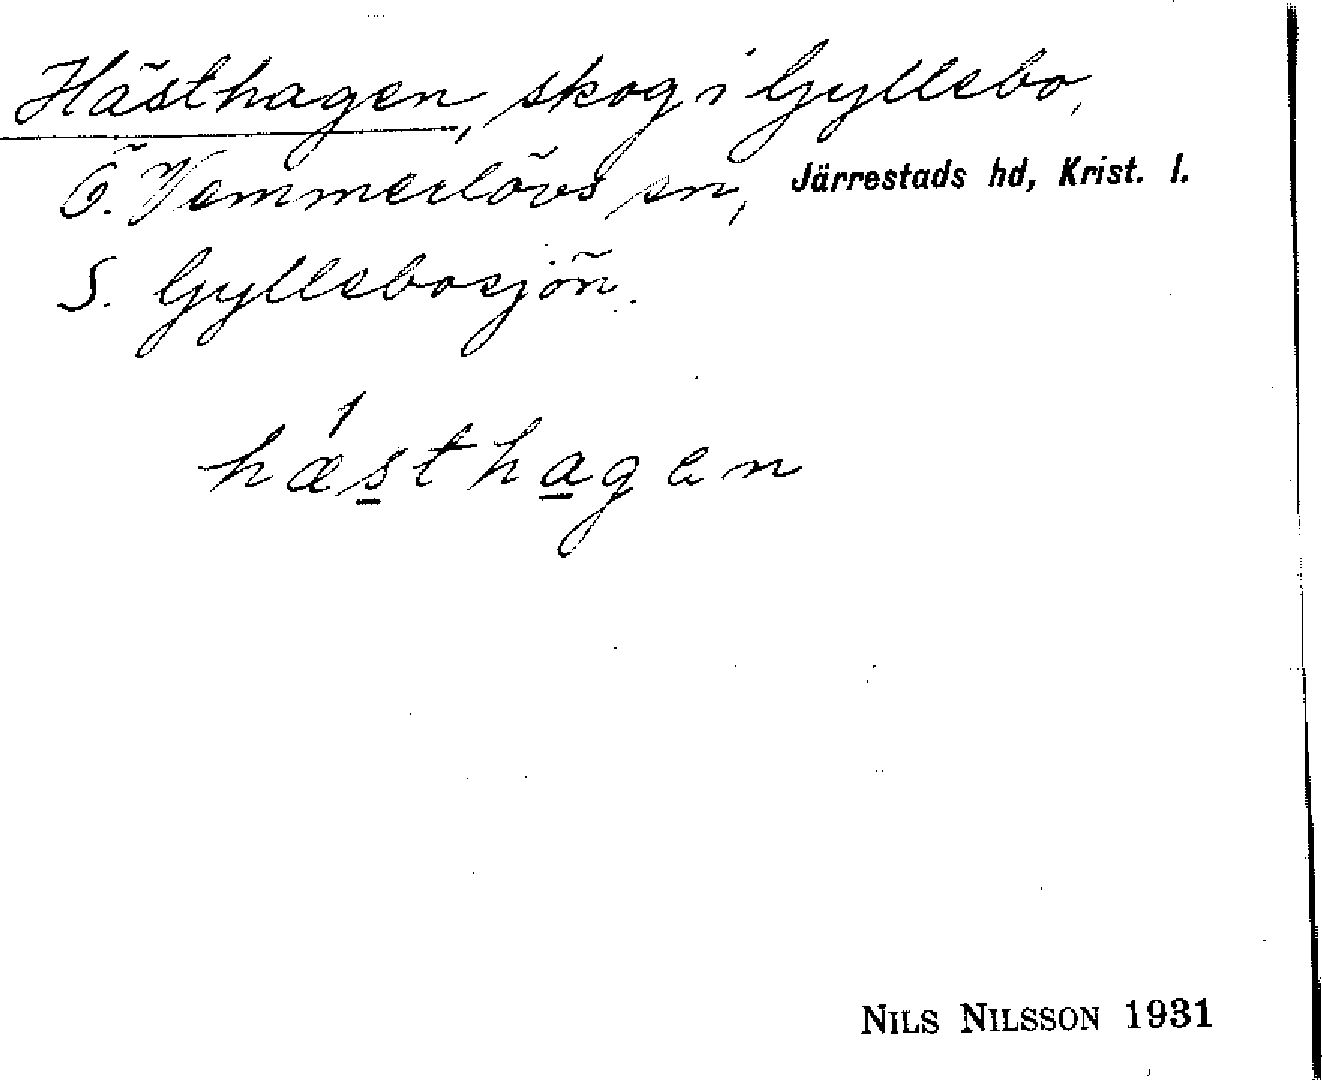 Hästhagen, skog i Gyllebo,
Ö. Vemmerlövs sn, Järrestads hd, Krist. l.
S. Gyllebosjön.
hæsthagen
NILS NILSSON 1931